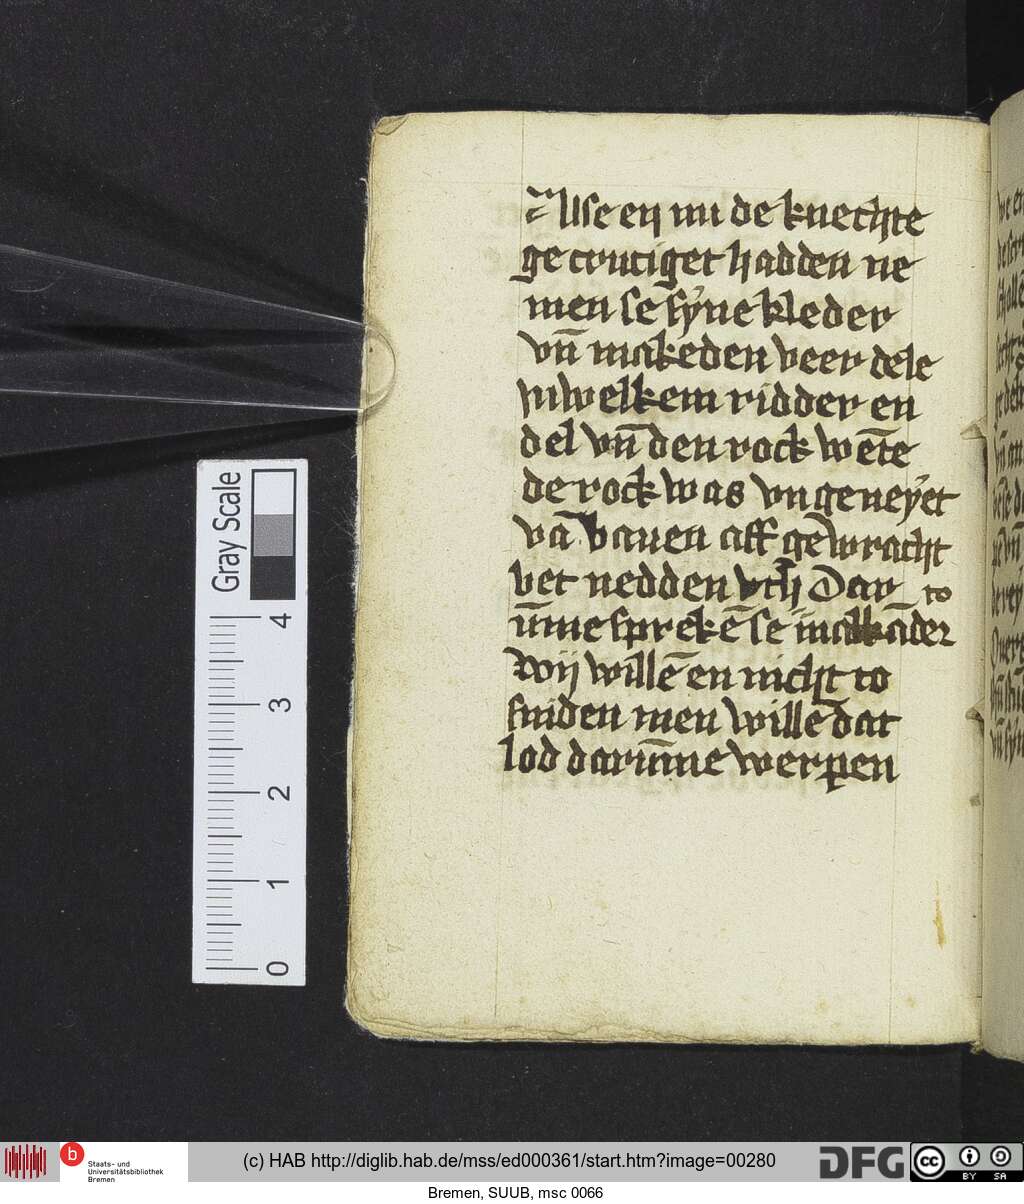 Alse en nu de knechte
gecruciget hadden ne
men se sẏne kleder
vn̄ makeden veer dele
ni welkem ridder en
del vn̄ den rock wēte
de rock was vngeneẏet
vā bauen aff gewracht
bet nedden vth Dar to
ūme sprekē se malkāder
Wij willē en nicht to
sniden men willē dat
lod darūme werpen
Gray Scale
4
3
2
1
0
b
Staats- und
Universitätsbibliothek
Bremen
(c) HAB http://diglib.hab.de/mss/ed000361/start.htm?image=00280
DFG
cc BY SA
Bremen, SUUB, msc 0066